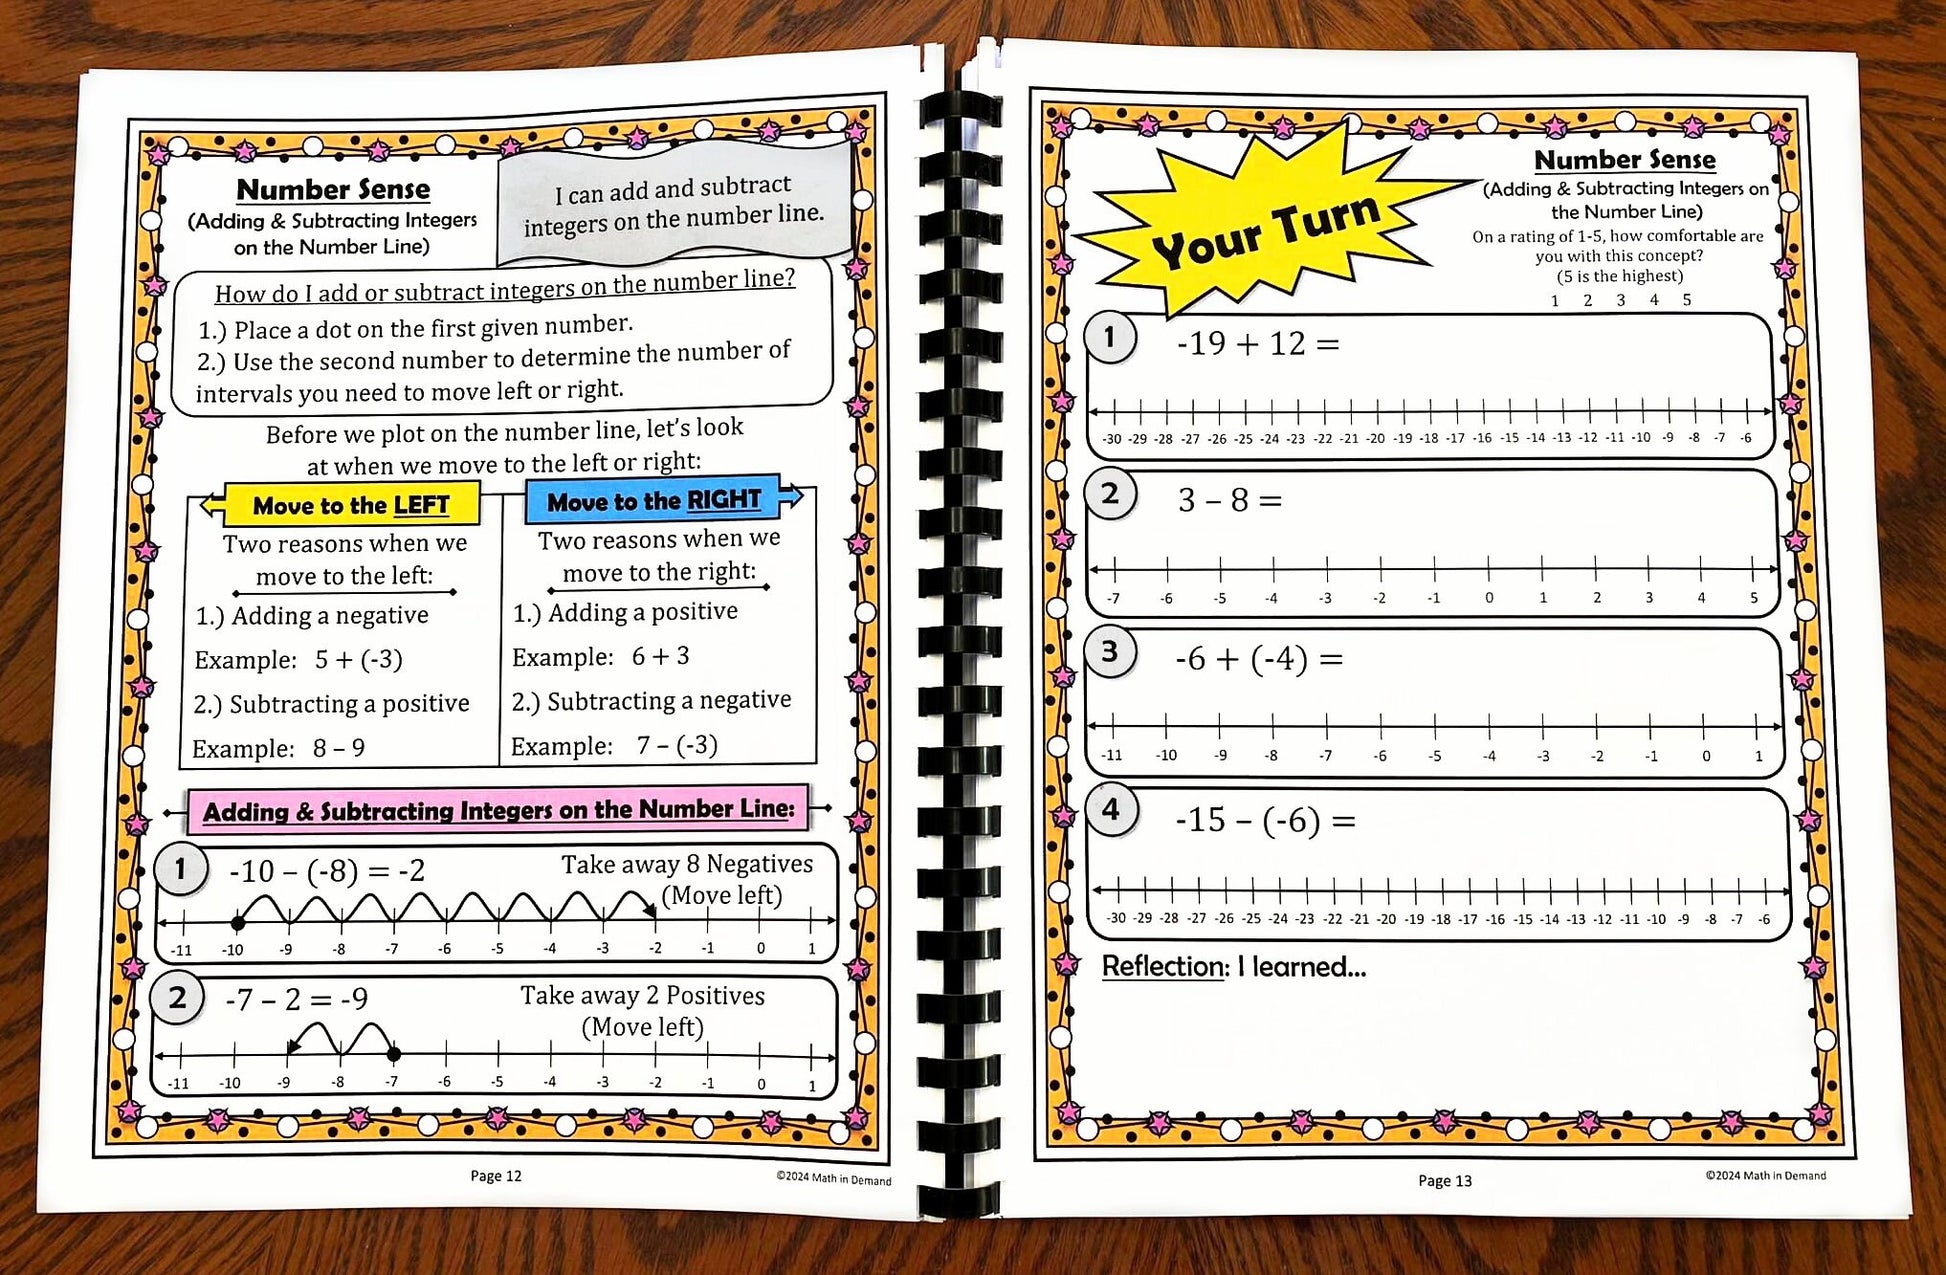 Number Sense
(Adding & Subtracting Integers
on the Number Line)
I can add and subtract
integers on the number line.
How do I add or subtract integers on the number line?
1.) Place a dot on the first given number.
2.) Use the second number to determine the number of
intervals you need to move left or right.
Before we plot on the number line, let's look
at when we move to the left or right:
Move to the LEFT
Two reasons when we
move to the left:
1.) Adding a negative
Example: 5 + (-3)
2.) Subtracting a positive
Example: 8 – 9
Move to the RIGHT
Two reasons when we
move to the right:
1.) Adding a positive
Example: 6 + 3
2.) Subtracting a negative
Example: 7 – (-3)
Adding & Subtracting Integers on the Number Line:
1 -10 – (-8) = -2 Take away 8 Negatives
(Move left)
-11 -10 -9 -8 -7 -6 -5 -4 -3 -2 -1 0 1
2 -7 – 2 = -9 Take away 2 Positives
(Move left)
-11 -10 -9 -8 -7 -6 -5 -4 -3 -2 -1 0 1
Page 12
©2024 Math in Demand
Your Turn
Number Sense
(Adding & Subtracting Integers on
the Number Line)
On a rating of 1-5, how comfortable are
you with this concept?
(5 is the highest)
1 2 3 4 5
1 -19 + 12 =
-30 -29 -28 -27 -26 -25 -24 -23 -22 -21 -20 -19 -18 -17 -16 -15 -14 -13 -12 -11 -10 -9 -8 -7 -6
2 3 – 8 =
-7 -6 -5 -4 -3 -2 -1 0 1 2 3 4 5
3 -6 + (-4) =
-11 -10 -9 -8 -7 -6 -5 -4 -3 -2 -1 0 1
4 -15 – (-6) =
-30 -29 -28 -27 -26 -25 -24 -23 -22 -21 -20 -19 -18 -17 -16 -15 -14 -13 -12 -11 -10 -9 -8 -7 -6
Reflection: I learned...
Page 13
©2024 Math in Demand